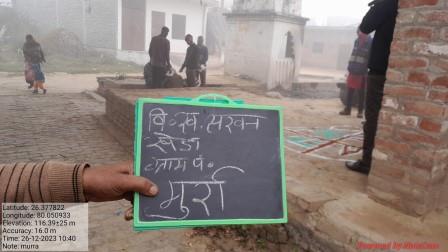 वि० ख० सरवन
खेड़ा
ग्राम पं०
मुर्रा
Latitude: 26.377822
Longitude: 80.050933
Elevation: 116.39±25 m
Accuracy: 16.0 m
Time: 26-12-2023 10:40
Note: murra
Powered by NoteCam